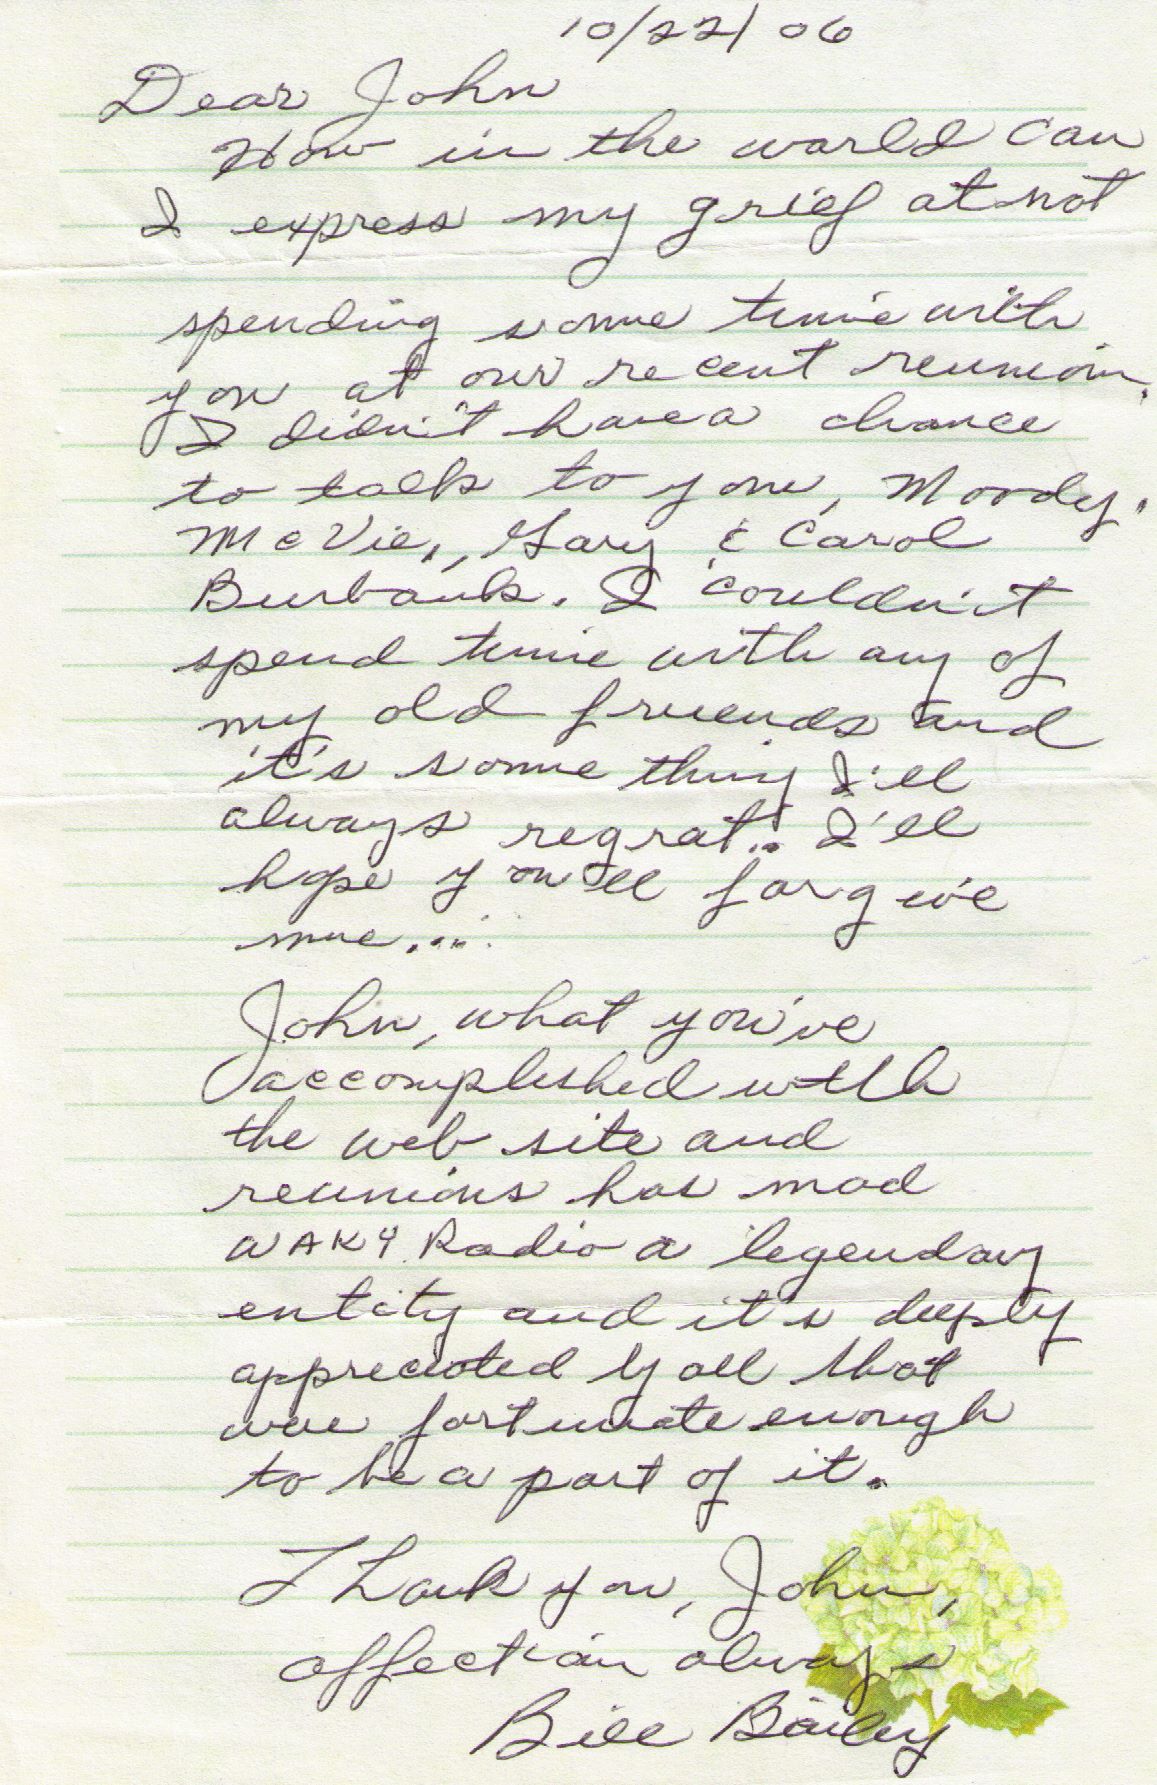 10/22/06
Dear John
How in the world can
I express my grief at not
spending some time with
you at our recent reunion.
I didn't have a chance
to talk to you, Moody,
McVie, Gary & Carol
Burbank. I couldn't
spend time with any of
my old friends and
it's some thing I'll
always regrat.. I'll
hope you'll forgive
me....
John, what you've
accomplished with
the web site and
reunions has mad
WAKY Radio a legendary
entity and it's deeply
appreciated by all that
were fortunate enough
to be a part of it.
Thank you, John,
affection always
Bill Bailey